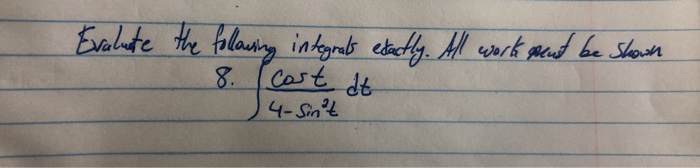 Evaluate the following integrals exactly. All work must be shown
8. ∫ cos t / 4 - sin²t dt